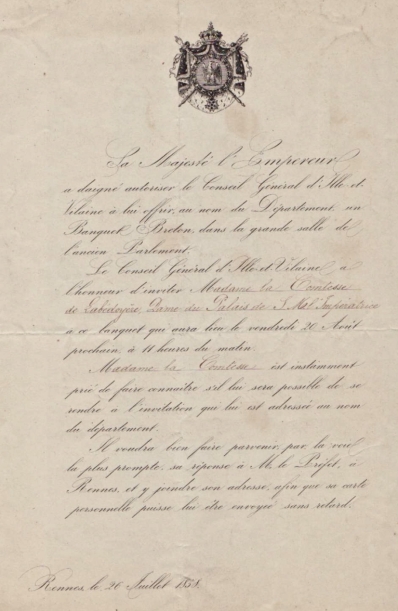 Sa Majesté l'Empereur
a daigné autoriser le Conseil Général d'Ille-et-
Vilaine à lui offrir, au nom du Département, un
Banquet Breton, dans la grande salle de
l'ancien Parlement.
Le Conseil Général d'Ille-et-Vilaine a
l'honneur d'inviter Madame la Comtesse
de Labédoyère, Dame du Palais de S. M. l'Impératrice
à ce banquet qui aura lieu le vendredi 20 Août
prochain, à 11 heures du matin.
Madame la Comtesse est instamment
prié de faire connaître s'il lui sera possible de se
rendre à l'invitation qui lui est adressée au nom
du département.
Il voudra bien faire parvenir, par la voie
la plus prompte, sa réponse à M. le Préfet, à
Rennes, et y joindre son adresse, afin que sa carte
personnelle puisse lui être envoyée sans retard.
Rennes, le 26 Juillet 1858.